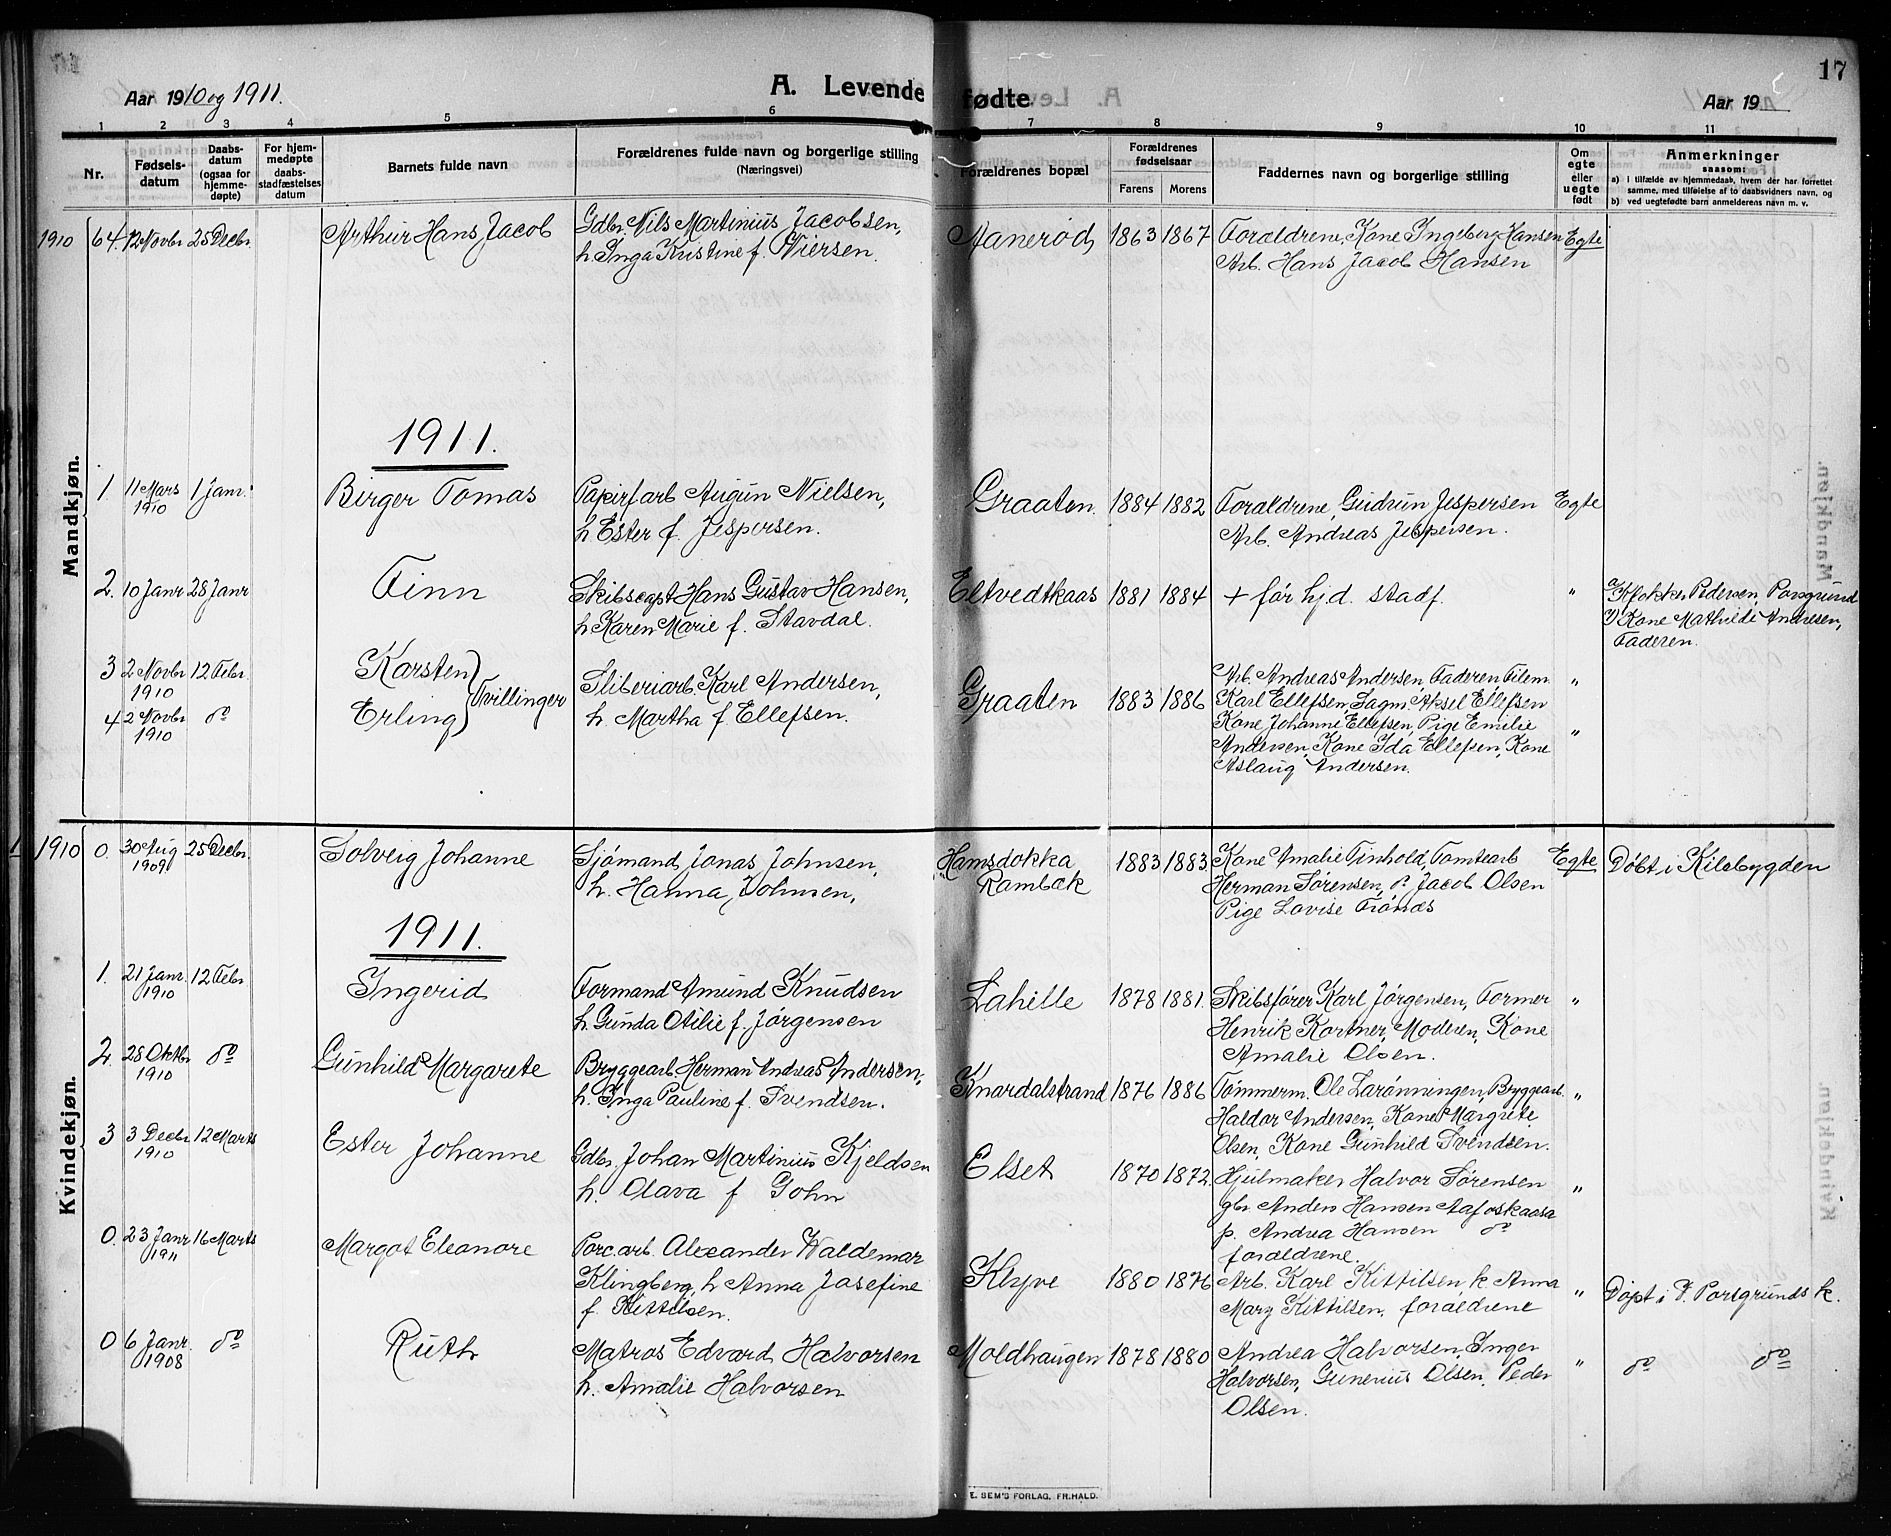 Aar 1910 og 1911.
A. Levende fødte
Aar 19
17
1 2 3 4 5 6 7 8 9 10 11
Nr.
Fødsels-
datum
Daabs-
datum
(ogsaa for
hjemme-
døpte)
For hjem-
medøpte
daabs-
stadfæstelses
datum
Barnets fulde navn
Forældrenes fulde navn og borgerlige stilling
(Næringsvei)
Forældrenes bopæl
Forældrenes
fødselsaar
Farens Morens
Faddernes navn og borgerlige stilling
Om
egte
eller
uegte
født
Anmerkninger
saasom:
a) i tilfælde av hjemmedaab, hvem der har forrettet
samme, med tilføielse af to daabsvidners navn, og
b) ved uegtefødte barn anmelderens navn m. v.
Mandkjøn.
1910 64 12 Novbr 25 Decbr. Arthur Hans Jacob Gdbr. Nils Martinius Jacobsen, Aanerød 1863 1867 Foraldrene, Kone Ingeborg Hansen Egte
h. Inga Kristine f. Wiersen. Arb. Hans Jacob Hansen
1911.
1 11 Mars 1 Janr. Birger Tomas Papirfarb Augun Nielsen, Graaten. 1884 1882 Foraldrene, Gudrun Jespersen Egte
1910 h. Ester f. Jespersen. Arb. Andreas Jespersen.
2. 10 Janr 28 Janr Finn Skibscapt Hans Gustav Hansen, Eltvedtkaas 1881 1884 + før hjd. stadf. " a/ Klokker Pedersen, Porsgrund
h Karen Marie f. Stavdal. b/ Kone Mathilde Andresen,
Faderen.
3 2 Novbr 12 Febr. Karsten Sliberiarb. Karl Andersen, Graaten 1883 1886 Arb. Andreas Andersen, Faderen Filem "
1910 Tvillinger Karl Ellefsen, Sagm. Aksel Ellefsen
4 2 Novbr do Erling h. Martha f Ellefsen. Kone Johanne Ellefsen, Pige Emilie "
1910 Andersen, Kone Ida Ellefsen, Kone
Aslaug Andersen.
Kvindekjøn.
1910 0. 30 Aug 25 Decbr. Solveig Johanne Sjømand, Jonas Johnsen, Hamsdokka 1883 1883. Kone Amalie Tinhold, Tomtearb Egte Døbt i Kilebygden
1909 h. Hanna Johnsen, Rambæk Herman Sørensen, p. Jacob Olsen
Pige Lovise Trønæs
1911.
1. 21 Janr. 12 Febr Ingerid Formand Amund Knudsen Lahelle 1878 1881. Skibsfører Karl Jørgensen, Former "
1910 h. Gunda Otilie f. Jørgensen Henrik Kortner, Moderen, Kone
Amalie Olsen.
2. 28 Oktbr do Gunhild Margarete Bryggearb. Herman Andreas Andersen, Knardalstrand 1876 1886 Tømmerm. Ole Larønningen, Bryggearb. "
1910 h. Inga Pauline f. Svendsen. Haldor Andersen, Kone Margrete
Olsen, Kone Gunhild Svendsen.
3 3 Decbr 12 Marts Ester Johanne Gdbr, Johan Martinius Kjeldsen Elset 1870 1872. Hjulmaker Halvor Sørensen "
1910 h. Olava f Gohn gbr Anders Hansen
p. Andrea Hansen do
foraldrene.
0. 23 Janr 16 Marts Margot Eleonore Porc.arb. Alexander Waldemar Klyve 1880 1876 Arb. Karl Kittilsen, k Anna " Døpt i V. Porsgrunds k.
1911 Klingberg, h Anna Josefine Mary Kittilsen, foraldrene
f. Kittilsen.
0 6 Janr. do Ruth Matros Edvard Halvorsen Moldhaugen 1878 1880 Andrea Halvorsen, Inger " do do
1908 h. Amalie Halvorsen Halvorsen, Gunerius Olsen. Peder
Olsen.
E. SEM'S FORLAG, FR.HALD.